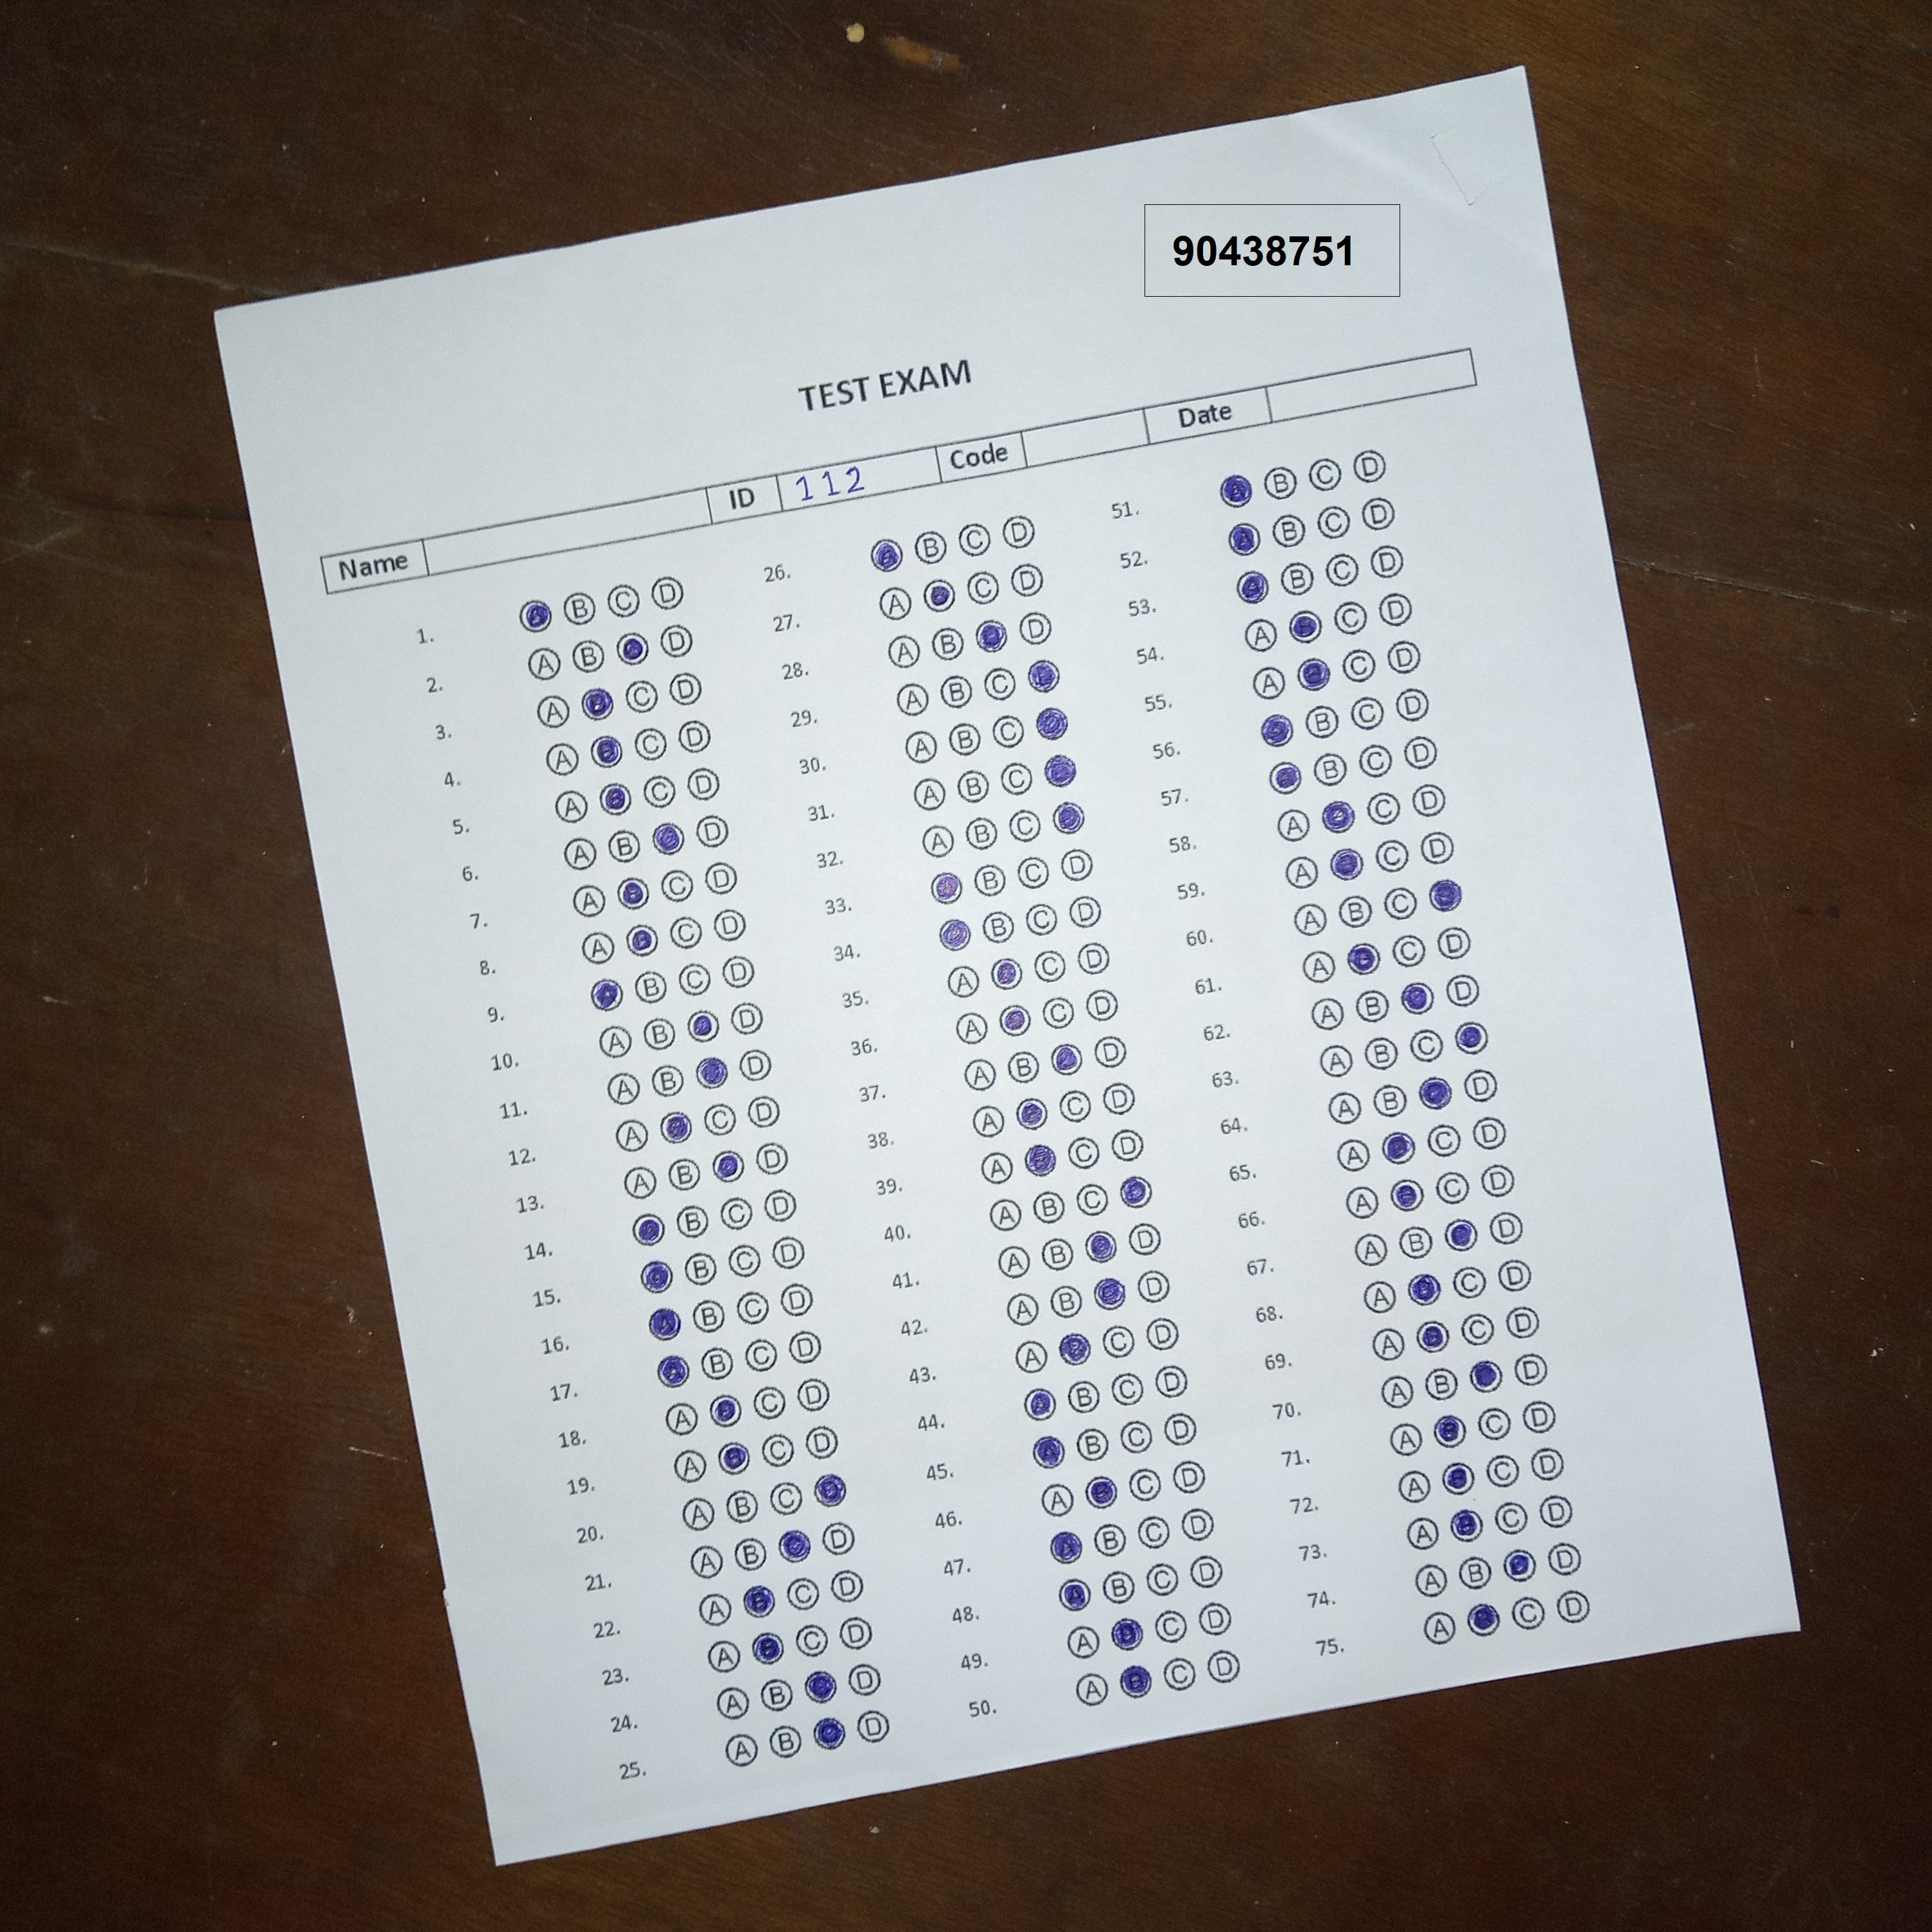 90438751
TEST EXAM
Name ID 112 Code Date
1. A B C D
2. A B C D
3. A B C D
4. A B C D
5. A B C D
6. A B C D
7. A B C D
8. A B C D
9. A B C D
10. A B C D
11. A B C D
12. A B C D
13. A B C D
14. A B C D
15. A B C D
16. A B C D
17. A B C D
18. A B C D
19. A B C D
20. A B C D
21. A B C D
22. A B C D
23. A B C D
24. A B C D
25. A B C D
26. A B C D
27. A B C D
28. A B C D
29. A B C D
30. A B C D
31. A B C D
32. A B C D
33. A B C D
34. A B C D
35. A B C D
36. A B C D
37. A B C D
38. A B C D
39. A B C D
40. A B C D
41. A B C D
42. A B C D
43. A B C D
44. A B C D
45. A B C D
46. A B C D
47. A B C D
48. A B C D
49. A B C D
50. A B C D
51. A B C D
52. A B C D
53. A B C D
54. A B C D
55. A B C D
56. A B C D
57. A B C D
58. A B C D
59. A B C D
60. A B C D
61. A B C D
62. A B C D
63. A B C D
64. A B C D
65. A B C D
66. A B C D
67. A B C D
68. A B C D
69. A B C D
70. A B C D
71. A B C D
72. A B C D
73. A B C D
74. A B C D
75. A B C D